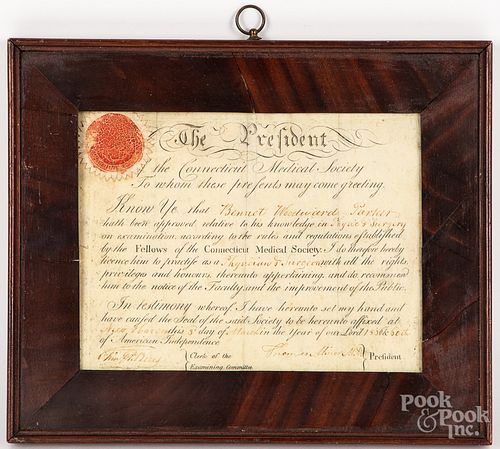 The President
of the Connecticut Medical Society
To whom these presents may come greeting.
Know Ye that Bennet Woodward Parker
hath been approved, relative to his knowledge in Physic & Surgery
on examination according to the rules and regulations established
by the Fellows of the Connecticut Medical Society. I do therefore hereby
licence him to practise as a Physician & Surgeon with all the rights,
privileges and honours thereunto appertaining, and do recommend
him to the notice of the Faculty and the improvement of the Public.
In testimony whereof I have hereunto set my hand and
have caused the Seal of the said Society to be hereunto affixed at
New Haven this 5th day of March in the Year of our Lord
of American Independence
Clerk of the
Examining Committee
President
POOK
& POOK
Inc.